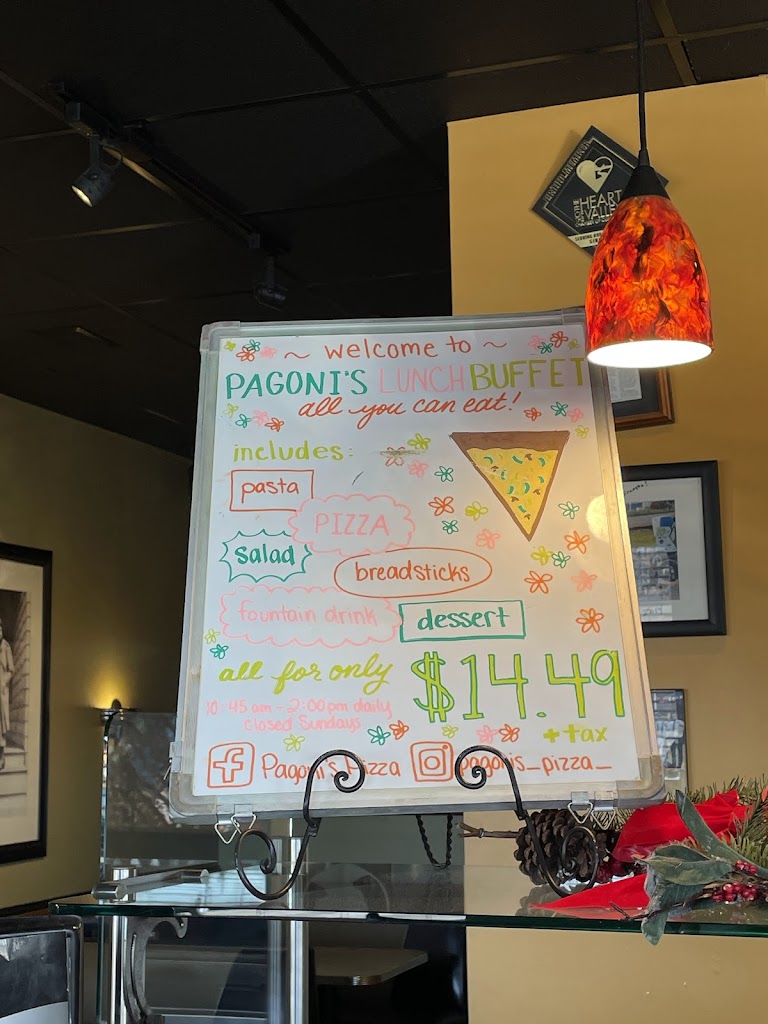 ~ welcome to ~
PAGONI'S LUNCH BUFFET
all you can eat!
includes:
pasta
PIZZA
salad
breadsticks
fountain drink
dessert
all for only
$14.49
10:45 am - 2:00 pm daily
closed Sundays
+tax
f Pagoni's Pizza
pagonis_pizza_
HEART
VALLE